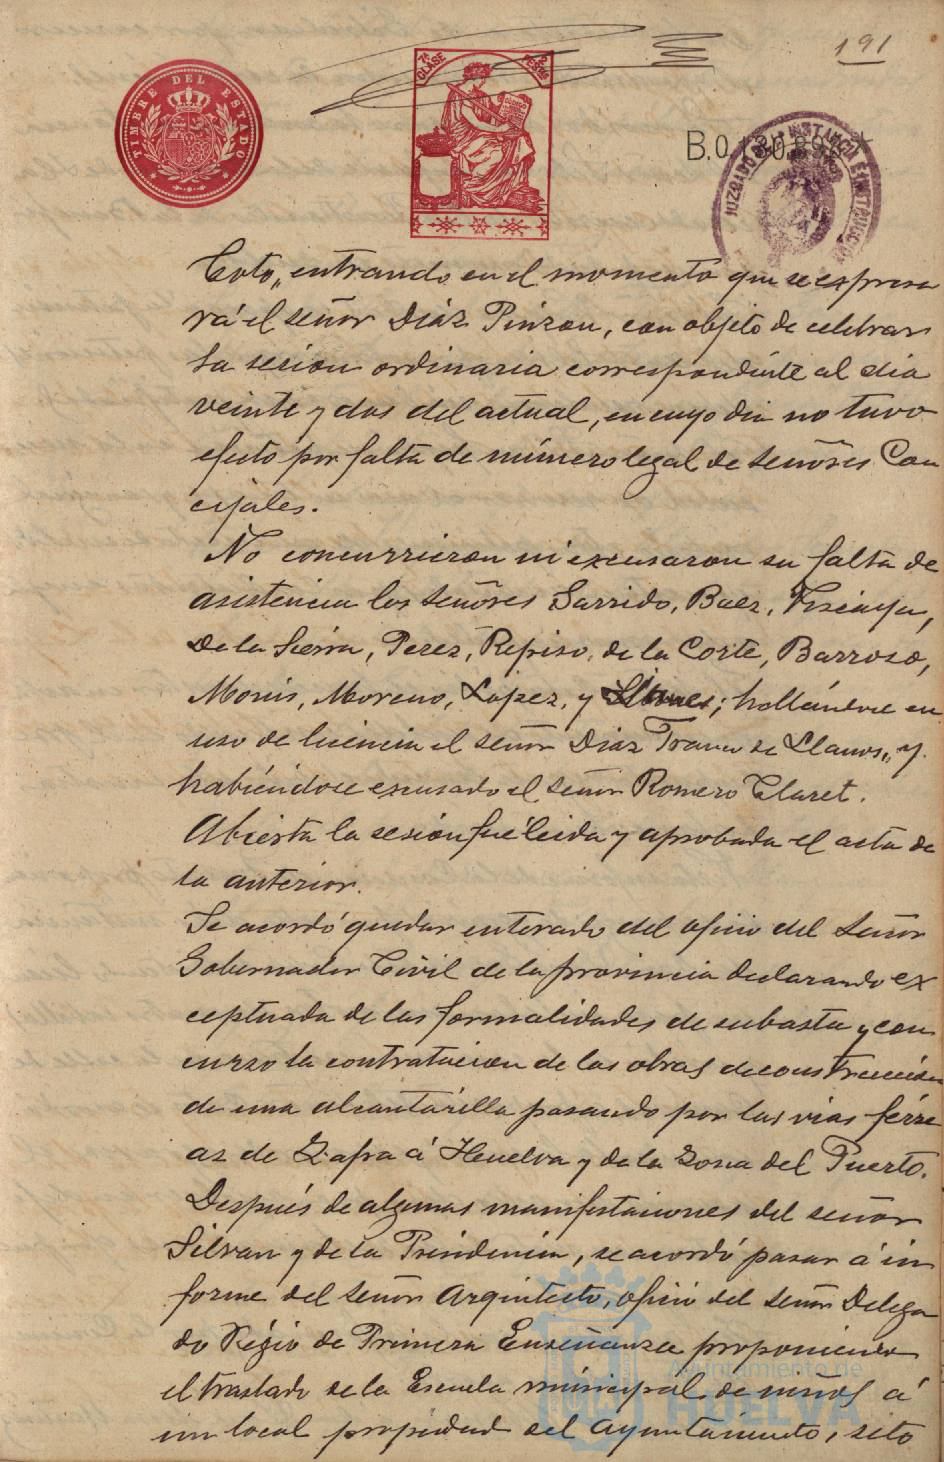 191
TIMBRE DEL ESTADO
7ª CLASE
PESETAS
B.0.130.898
JUZGADO DE 1ª INSTANCIA E INSTRUCCION
Coto,, entrando en el momento que se expresa
rá el señor Díaz Pinzon, con objeto de celebrar
la sesion ordinaria correspondiente al dia
veinte y dos del actual, en cuyo dia no tuvo
efecto por falta de número legal de señores Con
cejales.
No concurrieron ni excusaron su falta de
asistencia los señores Garrido, Baez, Vizcaya,
De la Sierra, Perez, Repiso, de la Corte, Barroso,
Monís, Moreno, López, y Llanes; hallándose en
uso de licencia el señor Diaz Franco de Llanos,, y
habiéndose excusado el señor Romero Claret.
Abierta la sesion fué leida y aprobada el acta de
la anterior.
Se acordó quedar enterado del oficio del Señor
Gobernador Civil de la provincia declarando ex
ceptuada de las formalidades de subasta y con
curso la contratacion de las obras de construccion
de una alcantarilla pasando por las vias férre
as de Zafra á Huelva y de la Zona del Puerto.
Después de algunas manifestaciones del señor
Silvan y de la Presidencia, se acordó pasar á in
forme del señor Arquitecto, oficio del señor Delega
do Regio de Primera Enseñanza proponiendo
el traslado de la Escuela municipal de niños á
un local propiedad del Ayuntamiento, sito
Ayuntamiento de
HUELVA